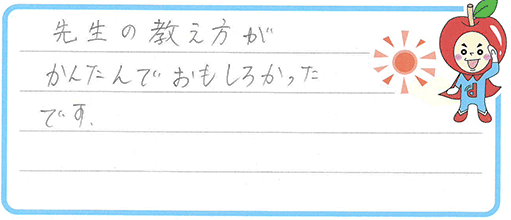 先生の教え方が
かんたんでおもしろかった
です.